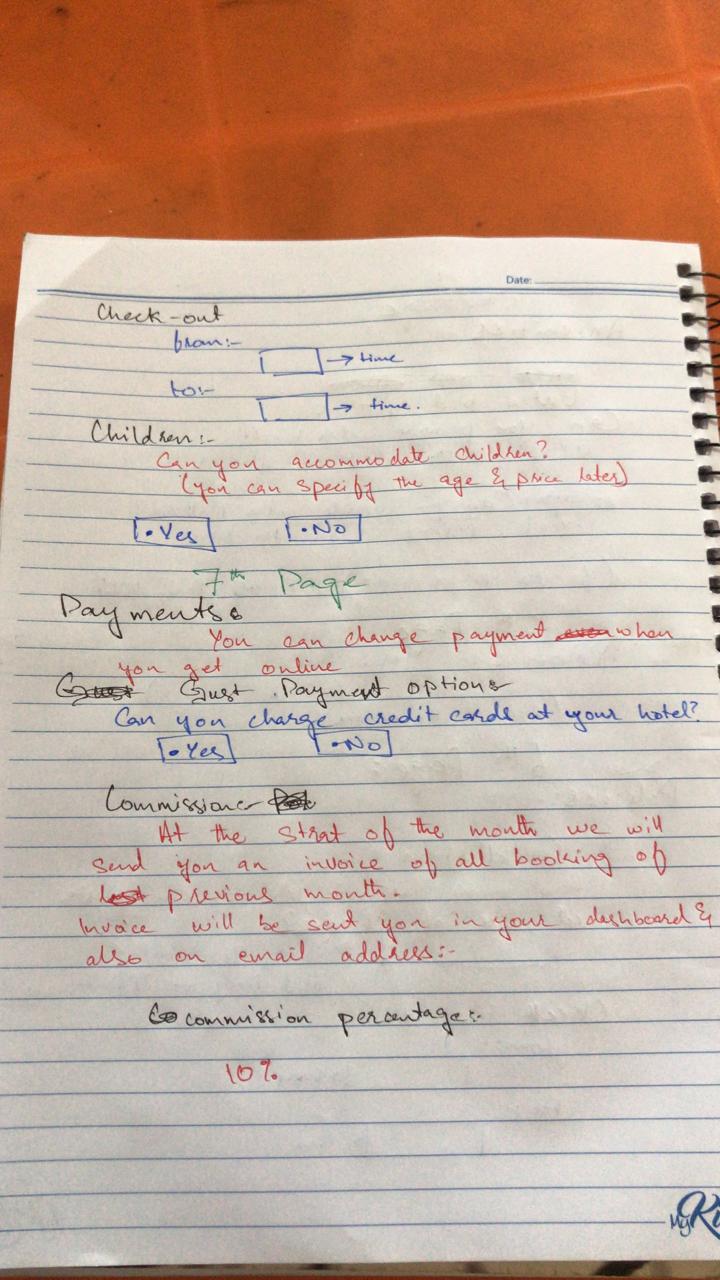 Date:
Check-out
from:-
→ time
to:-
→ time.
Children:-
Can you accommodate children?
(you can specify the age & price later)
• Yes • No
7th Page
Payments
You can change payment when
you get online
Gust Payment options
Can you charge credit cards at your hotel?
• Yes • No
Commission
At the strat of the month we will
send you an invoice of all booking of
previous month.
Invoice will be sent you in your dashboard &
also on email address:-
commission percentage:-
10%
My